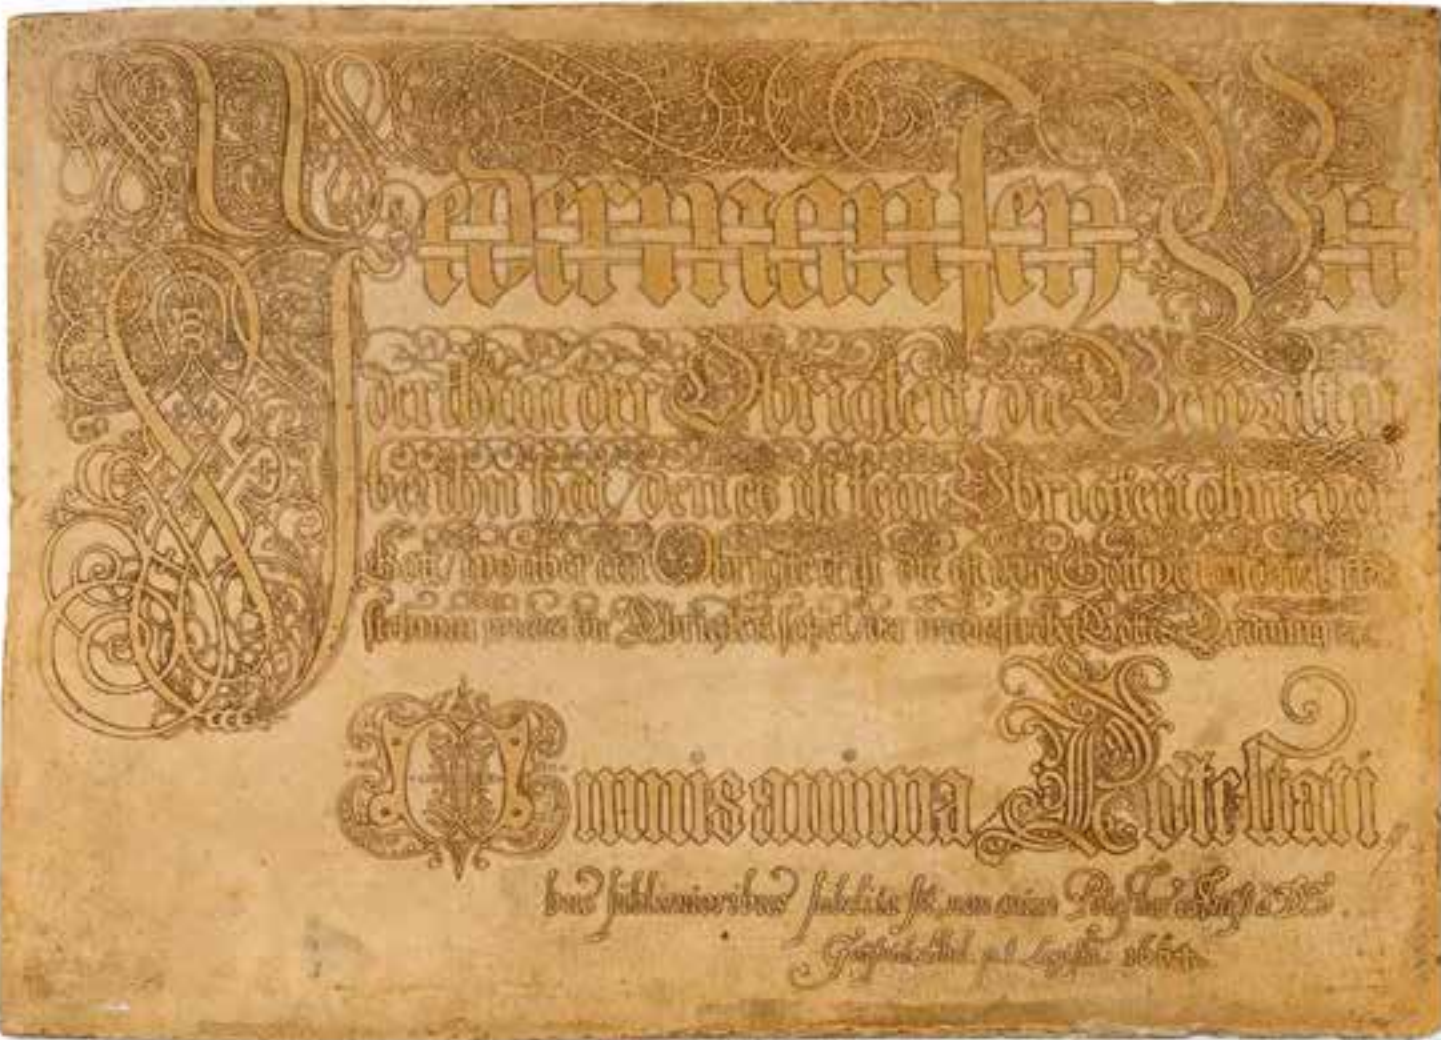 Jederman sey Un
der than der Obrigkeit/ die Gewalt
ber ihn hat/ denn es ist kein Obrigkeit ohne vo
Gott/ wo aber ein Obrigkeit ist die ist von Gott
sich nun wieder die Obrigkeit setzet/ der Gottes Ordnung
Omnis anima Potestati
bus sublimioribus subdita sit, non enim Potestas
1654